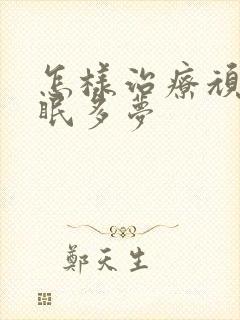 怎樣治療頑
眠多夢
鄭天生